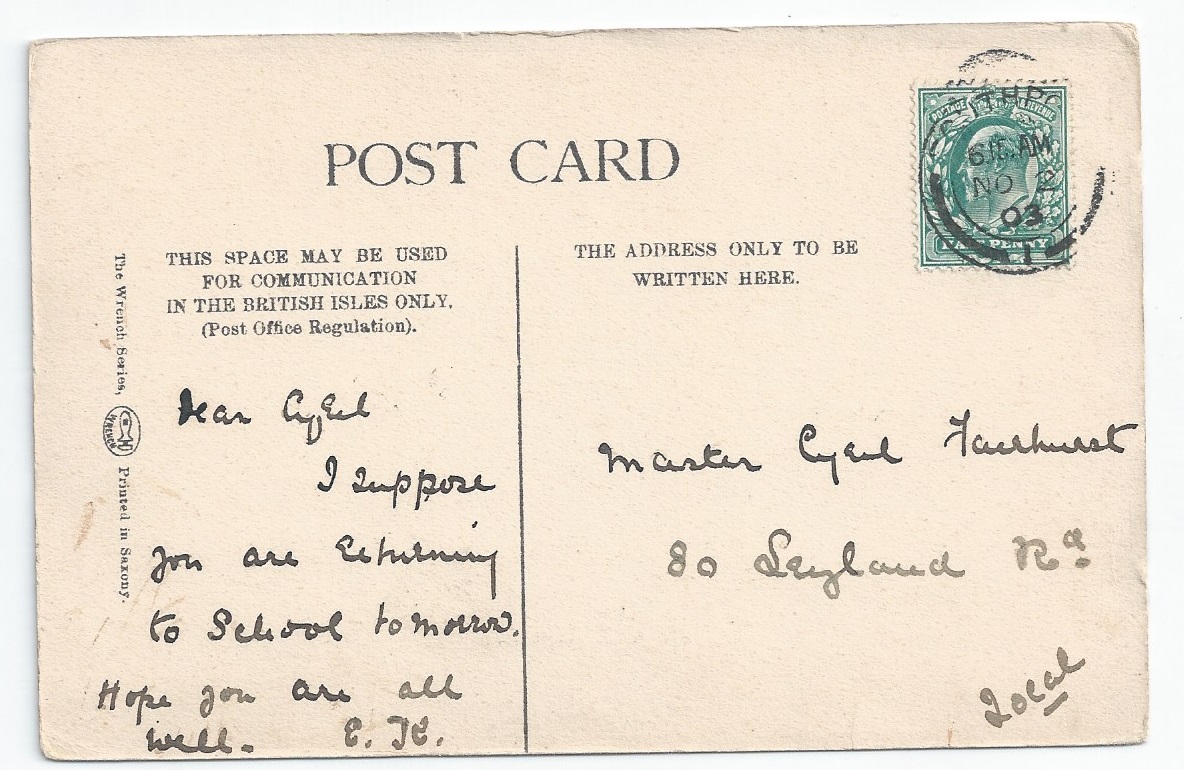 POST CARD
THIS SPACE MAY BE USED
FOR COMMUNICATION
IN THE BRITISH ISLES ONLY.
(Post Office Regulation).
THE ADDRESS ONLY TO BE
WRITTEN HERE.
The Wrench Series, WRENCH Printed in Saxony.
Dear Cyril
I suppose
you are returning
to School tomorrow.
Hope you are all
well.
Master Cyril Fairhurst
80 Leyland Rd
Local
POSTAGE REVENUE
HALFPENNY
AM
NO 2
03